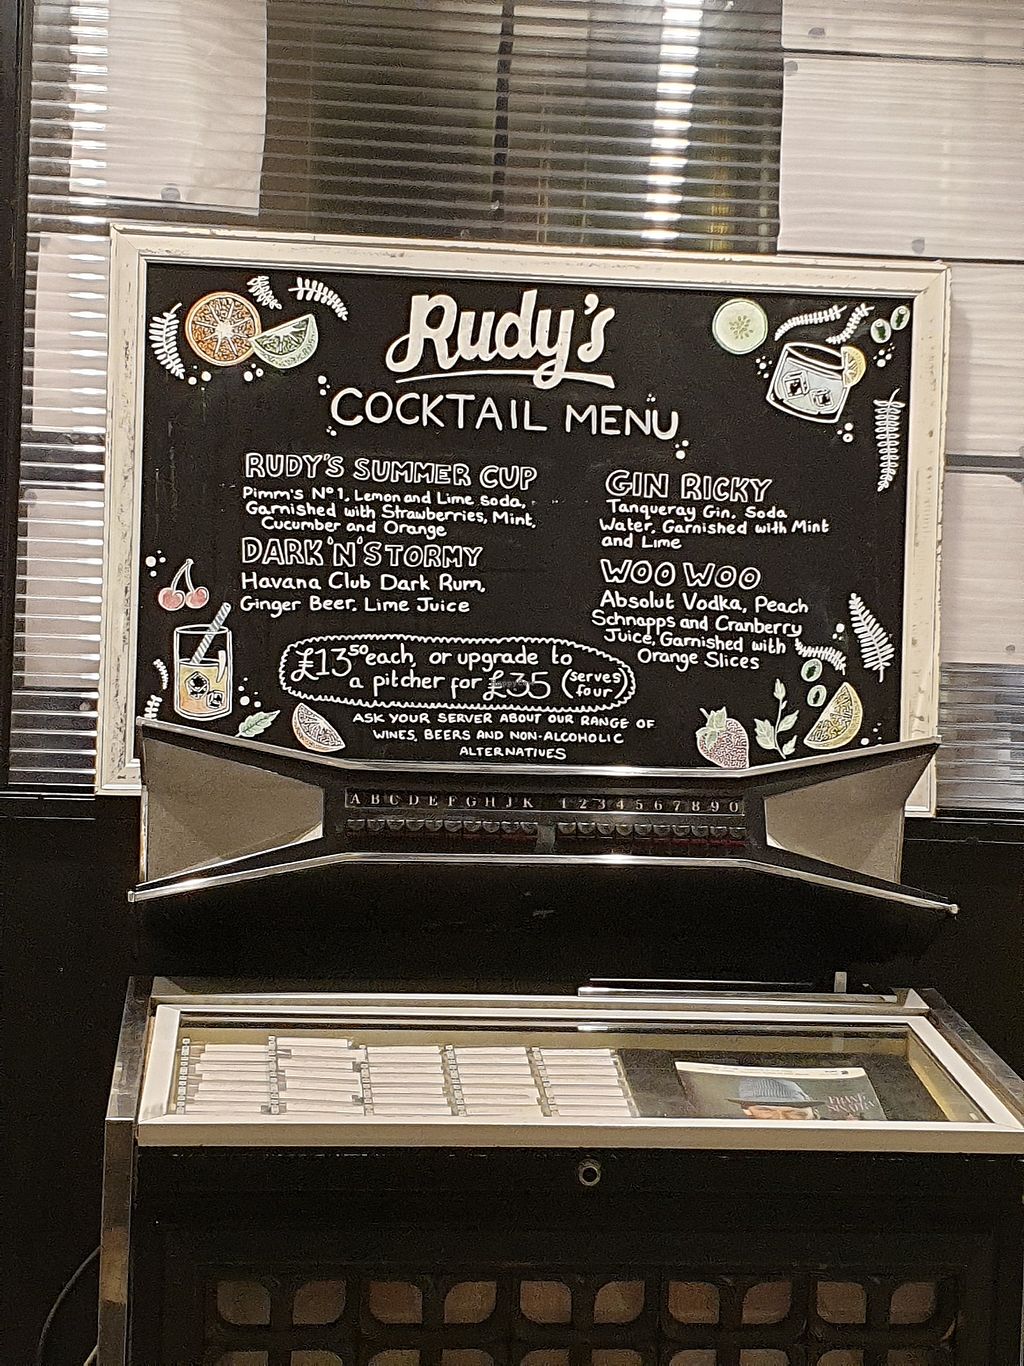 Rudy's
COCKTAIL MENU
RUDY'S SUMMER CUP
Pimm's Nº1, Lemon and Lime Soda,
Garnished with Strawberries, Mint,
Cucumber and Orange
DARK 'N' STORMY
Havana Club Dark Rum,
Ginger Beer, Lime Juice
GIN RICKY
Tanqueray Gin, Soda
Water, Garnished with Mint
and Lime
WOO WOO
Absolut Vodka, Peach
Schnapps and Cranberry
Juice, Garnished with
Orange Slices
£13⁵⁰ each, or upgrade to
a pitcher for £35 (serves
four)
ASK YOUR SERVER ABOUT OUR RANGE OF
WINES, BEERS AND NON-ALCOHOLIC
ALTERNATIVES
A B C D E F G H J K 1 2 3 4 5 6 7 8 9 0
FRANK
SINATRA